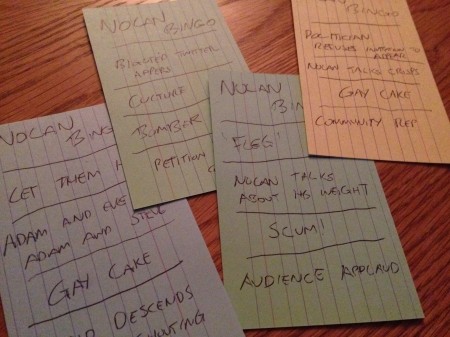 NOLAN
BINGO
BLOATED TWITTER
APPEARS
CULTURE
BOMBER
PETITION
BINGO
POLITICIAN
REFUSES INVITATION TO
APPEAR
NOLAN TALKS
GAY CAKE
COMMUNITY REP
NOLAN
BING
LET THEM
ADAM AND EVE
ADAM AND STEVE
GAY CAKE
DESCENDS
SHOUTING
NOLAN
BIN
FLEG!
NOLAN TALKS
ABOUT HIS WEIGHT
SCUM!
AUDIENCE APPLAUD